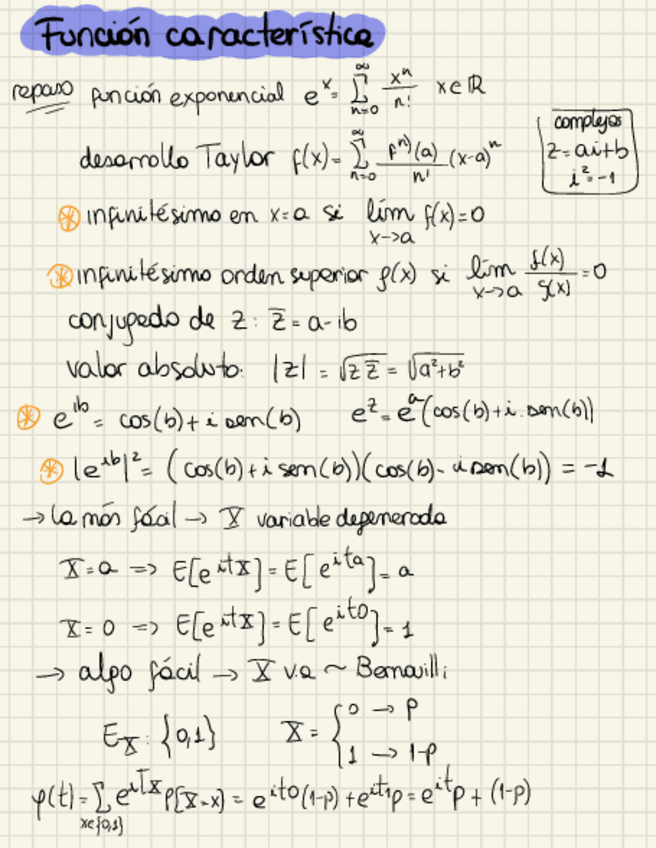 Función característica
repaso función exponencial e^x = ∑_{n=0}^{∞} x^n/n! x∈ℝ
complejos
z = ai+b
i² = -1
desarrollo Taylor f(x) = ∑_{n=0}^{∞} f^{n)}(a)/n! (x-a)^n
⊛ infinitésimo en x=a si lím_{x->a} f(x)=0
⊛ infinitésimo orden superior g(x) si lím_{x->a} f(x)/g(x) = 0
conjugado de z: z̄ = a-ib
valor absoluto: |z| = √(z z̄) = √(a²+b²)
⊛ e^{ib} = cos(b) + i sen(b) e^z = e^a (cos(b)+i.sen(b))
⊛ |e^{ib}|² = (cos(b)+i sen(b))(cos(b)- i sen(b)) = -1
→ la más fácil → X variable degenerada
X=a => E[e^{itX}] = E[e^{ita}] = a
X=0 => E[e^{itX}] = E[e^{it0}] = 1
→ algo fácil → X v.a ~ Bernouilli
E_X: {0,1} X = { 0 → p
1 → 1-p
φ(t) = ∑_{x∈{0,1}} e^{itx} P[X=x) = e^{it0}(1-p) + e^{it1}p = e^{it}p + (1-p)